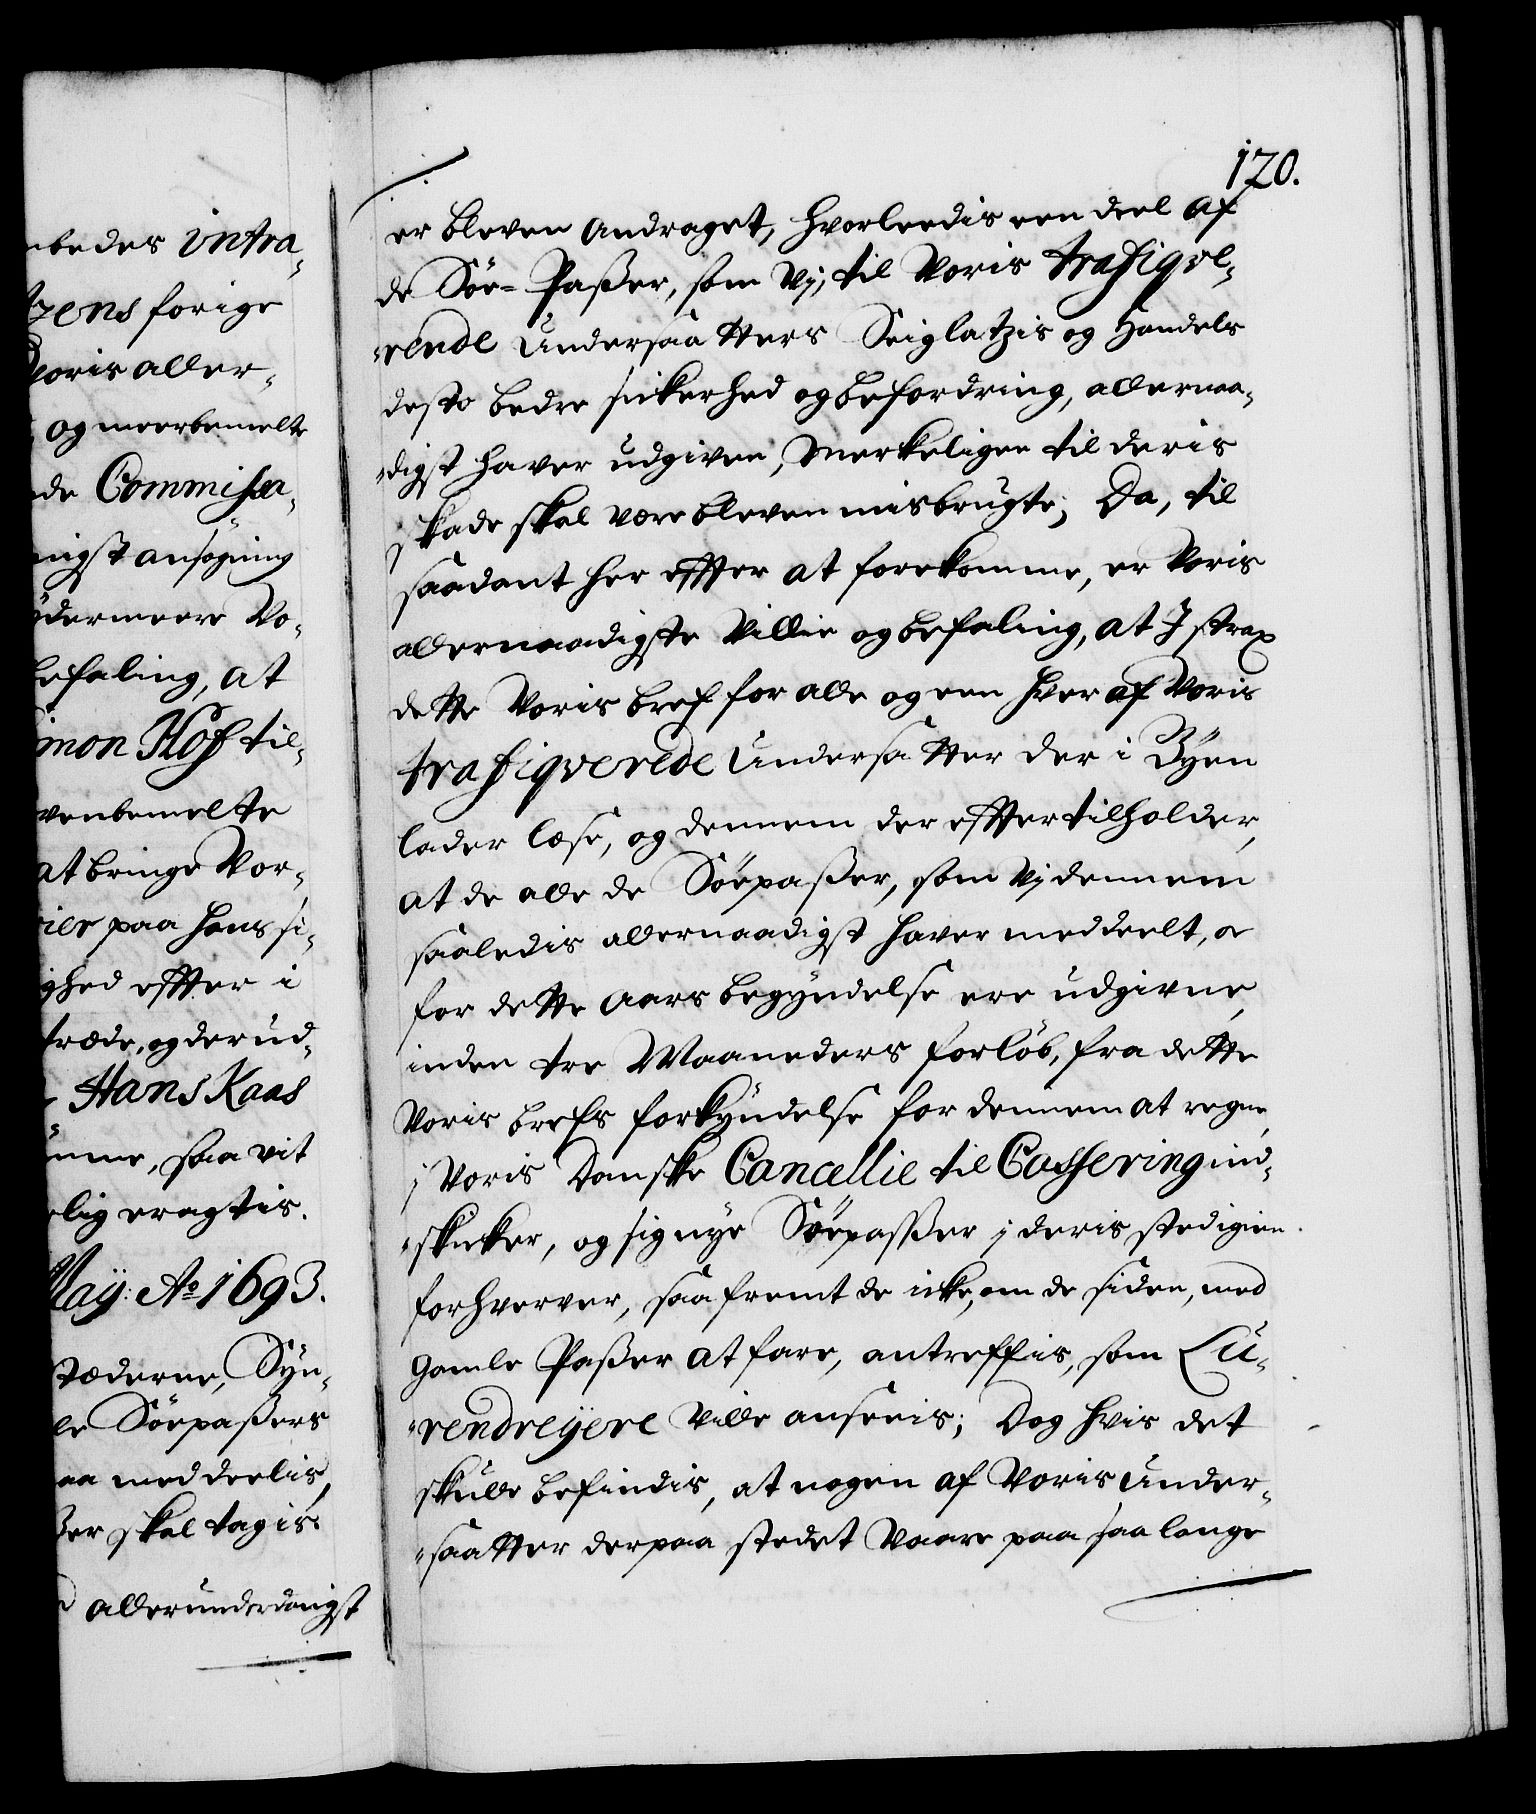 nbedes intra¬
tzens forige
Voris aller¬
og meerbemelte
de Commissa¬
nigst ansøgning
ÿdermeere Vo¬
befaling, at
imon Hof til¬
venbemelte
at bringe Vor¬
paa hans si¬
ighed effter i
træde, og der ud¬
Hans Kaas
mme, saa vit
lig eragtis.
Maÿ: Ao 1693.
stæderne, Syn¬
le Söepassers
aa meddeelis,
ser skal tagis
allerunderdanigst
120.
er bleven andraget, hvorleedis een deel af
de Söe-Passer, som Vj, til Voris trafiqve¬
rende Undersaatters Seiglatzis og Handels
desto bedre sickerhed og befordring, allernaa¬
digst haver udgiven, merkeligen til deris
skade skal være bleven misbrugte; Da, til
saadant her effter at forekomme, er Voris
allernaadigste Villie og befaling, at I strax
dette Voris bref for alle og een hver af Voris
trafiqverede Undersatter der i Byen
lader læse, og dennem der effter tilholder,
at de alle de Söepasser, som Vj dennem
saaledis allernaadigst haver meddeelt, oc
for dette Aars begyndelse ere udgivne,
inden tre Maaneders forløb, fra dette
Voris brefs forkyndelse for dennem at regne,
j Voris Danske Cancellie til Casseringind¬
skicker, og sig nye Söepasser j deris sted igien
forhverver, saafremt de icke, om de siden, med
gamle Passer at fare, antreffis, som Lu¬
rendreÿere ville ansees; Dog hvis det
skulle befindis, at nogen af Voris Under¬
saatter derpaa stedet Vaare paa saa lange